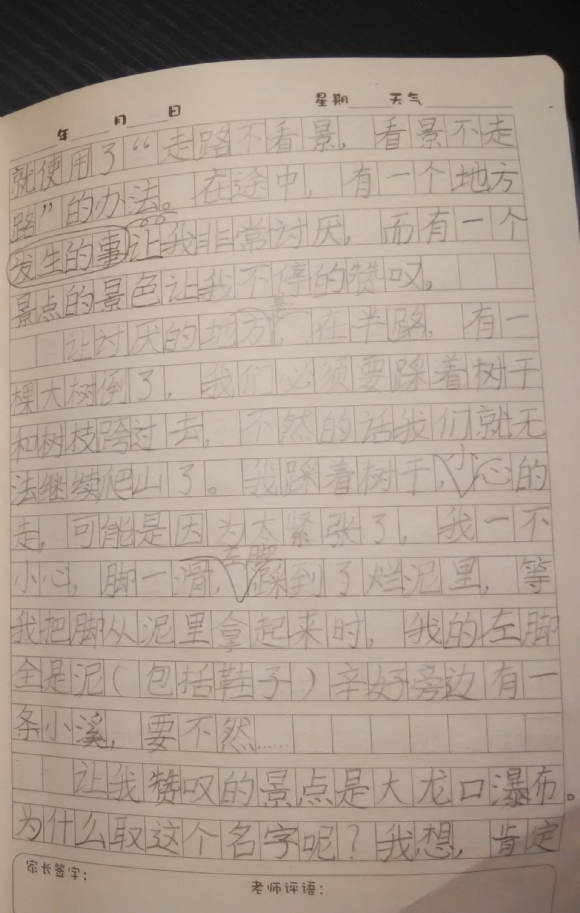 年 月 日 星期 天气
就使用了“走路不看景，看景不走
路”的办法。在途中，有一个地方
发生的事让我非常讨厌，而有一个
景点的景色让我不停的赞叹。
让讨厌的地方，在半路，有一
棵大树倒了，我们必须要踩着树干
和树枝跨过去，不然的话我们就无
法继续爬山了。我踩着树干，小心的
走，可能是因为太紧张了，我一不
小心，脚一滑，踩到了烂泥里，等
我把脚从泥里拿起来时，我的左脚
全是泥（包括鞋子）辛好旁边有一
条小溪，要不然……
让我赞叹的景点是大龙口瀑布。
为什么取这个名字呢？我想，肯定
家长签字：
老师评语：